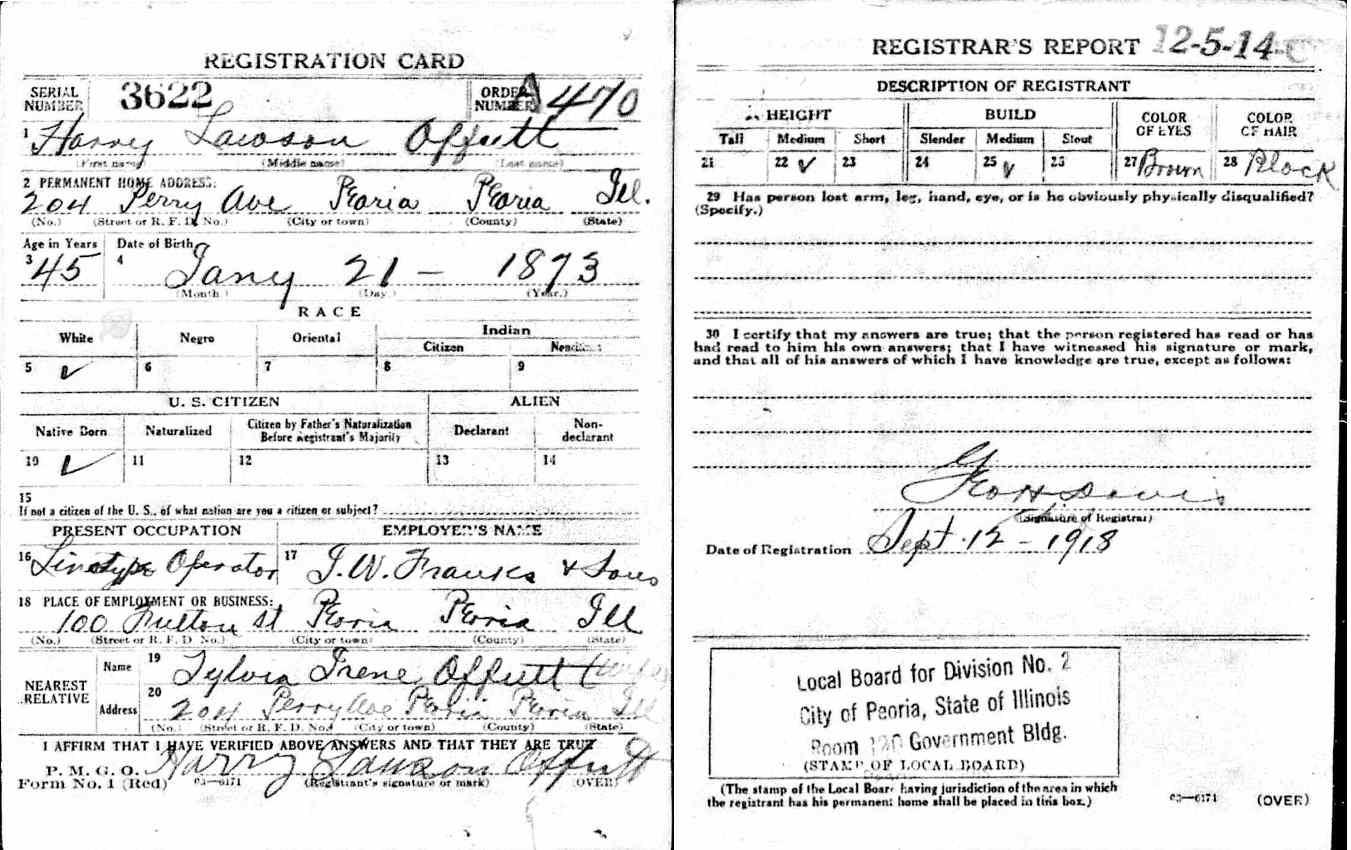 REGISTRATION CARD
SERIAL NUMBER 3622 ORDER NUMBER A 470
1 Harry Lawson Offutt
(First name) (Middle name) (Last name)
2 PERMANENT HOME ADDRESS:
204 Perry Ave Peoria Peoria Ill.
(No.) (Street or R. F. D. No.) (City or town) (County) (State)
Age in Years Date of Birth
3 45 4 Jany 21 - 1873
(Month.) (Day.) (Year.)
RACE
White Negro Oriental Indian
Citizen Noncitizen
5 ✓ 6 7 8 9
U. S. CITIZEN ALIEN
Native Born Naturalized Citizen by Father's Naturalization Before Registrant's Majority Declarant Non-declarant
10 ✓ 11 12 13 14
15
If not a citizen of the U. S., of what nation are you a citizen or subject?
PRESENT OCCUPATION EMPLOYER'S NAME
16 Linotype Operator 17 J. W. Franks & Sons
18 PLACE OF EMPLOYMENT OR BUSINESS:
100 Fulton St Peoria Peoria Ill
(No.) (Street or R. F. D. No.) (City or town) (County) (State)
NEAREST RELATIVE Name 19 Sylvia Irene Offutt
Address 20 204 Perry Ave Peoria Peoria Ill
(No.) (Street or R. F. D. No.) (City or town) (County) (State)
I AFFIRM THAT I HAVE VERIFIED ABOVE ANSWERS AND THAT THEY ARE TRUE
P. M. G. O. Harry Lawson Offutt
Form No. 1 (Red) 03—6171 (Registrant's signature or mark) (OVER)
REGISTRAR'S REPORT 12-5-14-C
DESCRIPTION OF REGISTRANT
HEIGHT BUILD COLOR OF EYES COLOR OF HAIR
Tall Medium Short Slender Medium Stout
21 22 ✓ 23 24 25 ✓ 26 27 Brown 28 Black
29 Has person lost arm, leg, hand, eye, or is he obviously physically disqualified?
(Specify.)
30 I certify that my answers are true; that the person registered has read or has
had read to him his own answers; that I have witnessed his signature or mark,
and that all of his answers of which I have knowledge are true, except as follows:
Geo H Davis
(Signature of Registrar)
Date of Registration Sept. 12 - 1918
Local Board for Division No. 2
City of Peoria, State of Illinois
Room 120 Government Bldg.
(STAMP OF LOCAL BOARD)
(The stamp of the Local Board having jurisdiction of the area in which
the registrant has his permanent home shall be placed in this box.)
03—6171 (OVER)